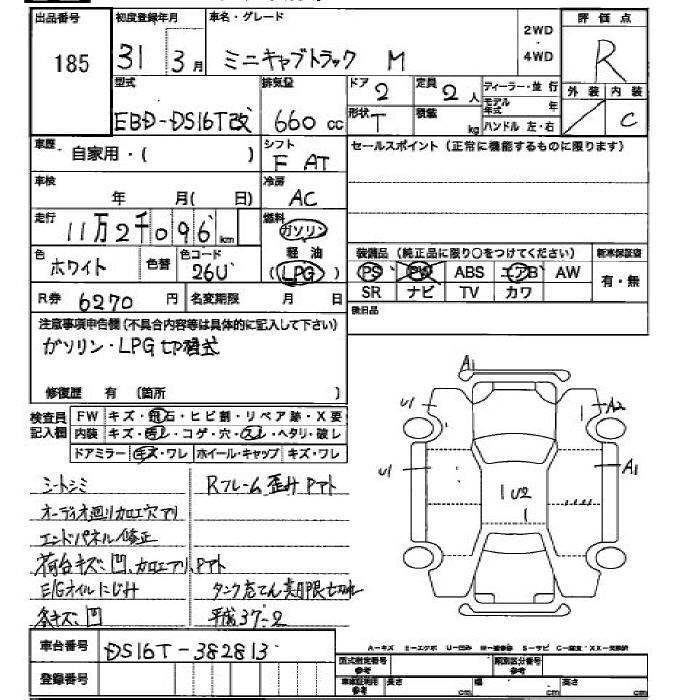 出品番号
185
初度登録年月
31 3月
車名・グレード
ミニキャブトラック M
2WD
・
4WD
評価点
R
外装 内装
C
型式
EBD-DS16T改
排気量
660 cc
ドア 2
定員 2人
形状 T
積載 kg
ディーラー・並行
モデル年式 年
ハンドル 左・右
車歴 自家用・( )
シフト
F AT
セールスポイント(正常に機能するものに限ります)
車検 年 月( 日)
冷房
AC
走行
11万2千096km
燃料
ガソリン
軽油
LPG
色
ホワイト
色替
色コード
26U
装備品(純正品に限り○をつけてください)
PS PW ABS エアB AW
SR ナビ TV カワ
新車保証書
有・無
R券 6270円
名変期限 月 日
後日品
注意事項申告欄(不具合内容等は具体的に記入して下さい)
ガソリン・LPG切替式
修復歴 有 〔箇所 〕
検査員
記入欄
FW キズ・飛石・ヒビ割・リペア跡・X要
内装 キズ・汚レ・コゲ・穴・スレ・ヘタリ・破レ
ドアミラー キズ・ワレ ホイール・キャップ キズ・ワレ
シートシミ
Rフレーム歪みPアト
オーディオ廻り加工穴アリ
エンドパネル修正
荷台キズ、凹、加工アリ、Pアト
E/Gオイルにじみ
タンク充てん期限切れ
各キズ、凹
平成37-2
A1
U1
A2
U1
A1
U2
車台番号 DS16T-382813
登録番号
A-キズ E-エクボ U-凹み W-補修跡 S-サビ C-腐食・XX-交換済
型式指定番号
参考
類別区分番号
参考
車庫証明用
参考
長さ cm
幅 cm
高さ cm